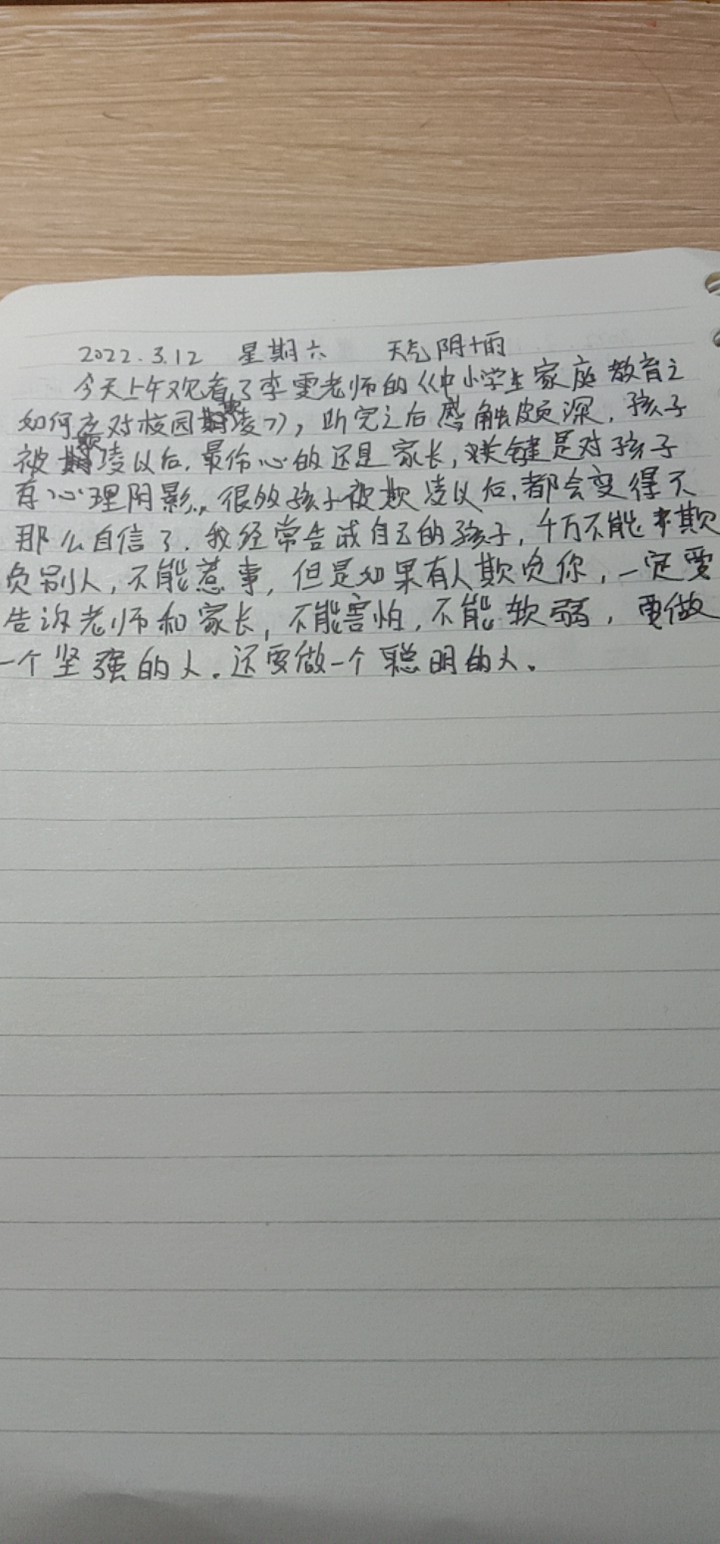 2022.3.12 星期六 天气阴十雨
今天上午观看了李雯老师的《中小学生家庭教育之
如何应对校园欺凌》，听完之后感触颇深，孩子
被欺凌以后，最伤心的还是家长，关键是对孩子
有心理阴影，很多孩子被欺凌以后，都会变得不
那么自信了．我经常告诫自己的孩子，千万不能欺
负别人，不能惹事，但是如果有人欺负你，一定要
告诉老师和家长，不能害怕，不能软弱，要做
一个坚强的人．还要做一个聪明的人．